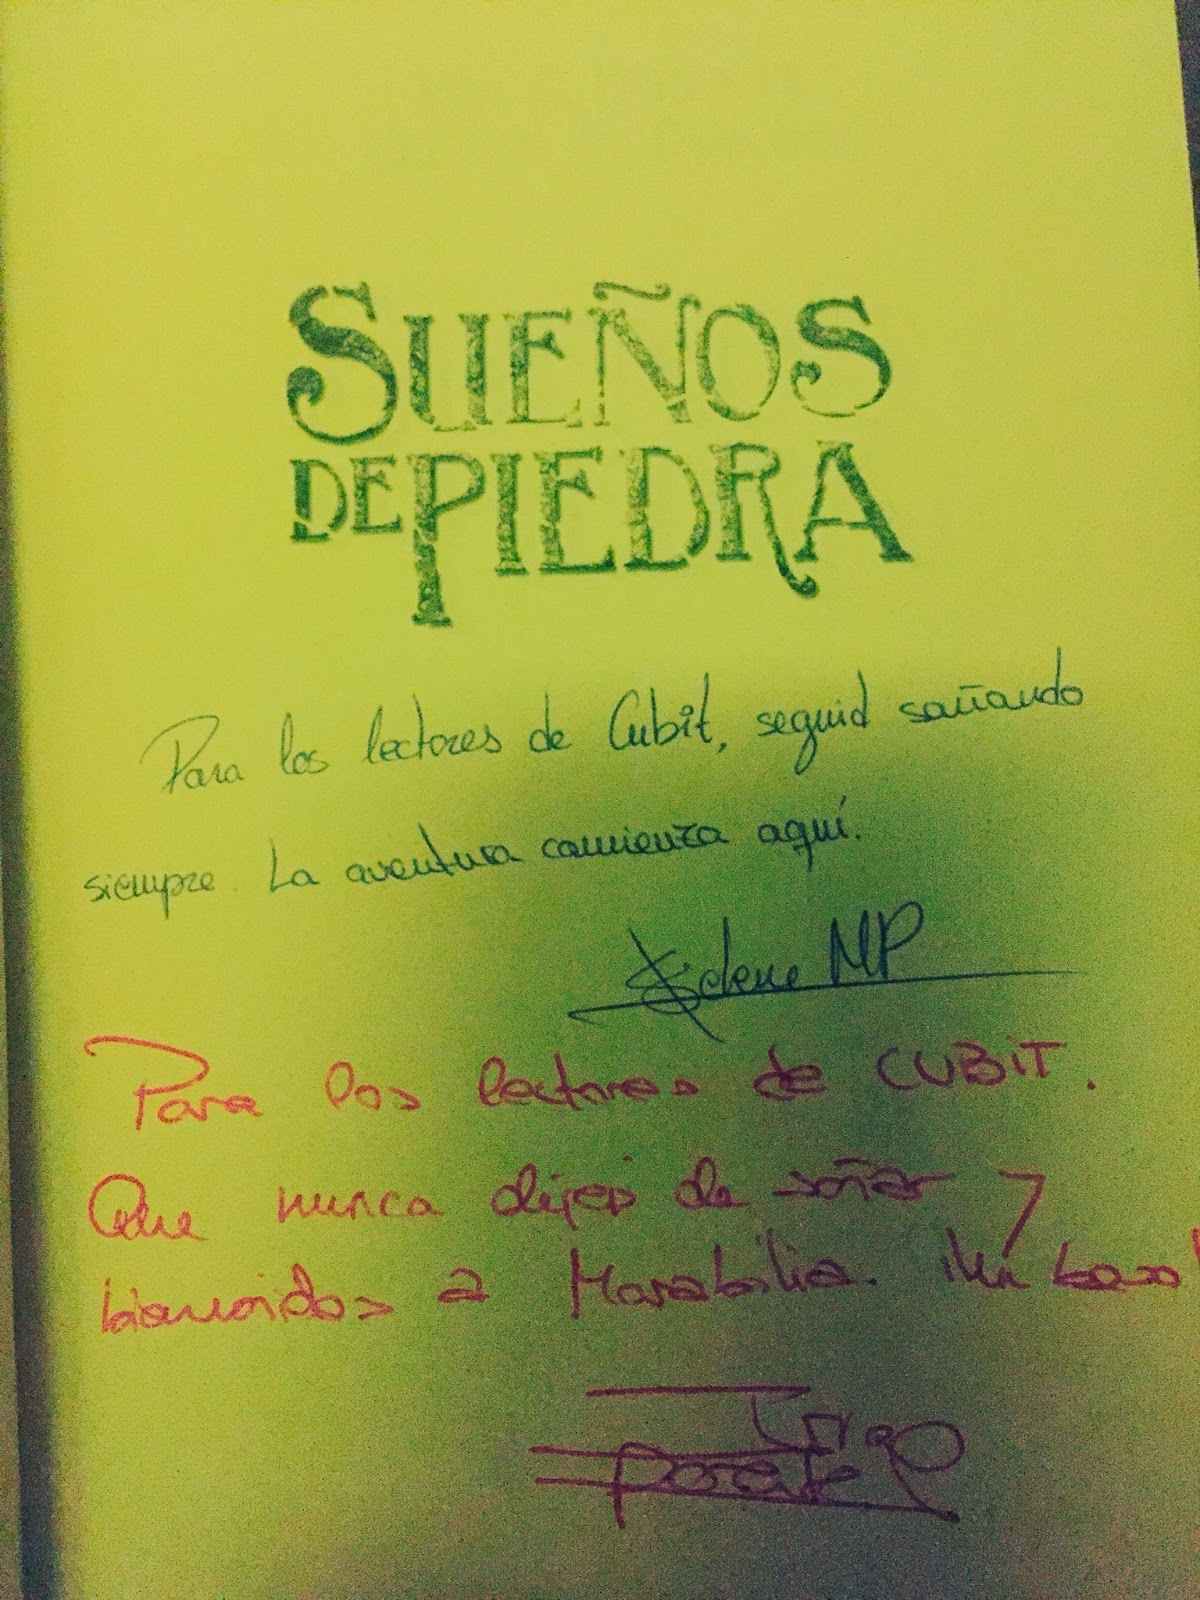 SUEÑOS
DE PIEDRA
Para los lectores de Cubit, seguid soñando
siempre. La aventura comienza aquí.
Selene MP
Para los lectores de CUBIT.
Que nunca dejéis de soñar y
bienvenidos a Marabilia. ¡Un beso!